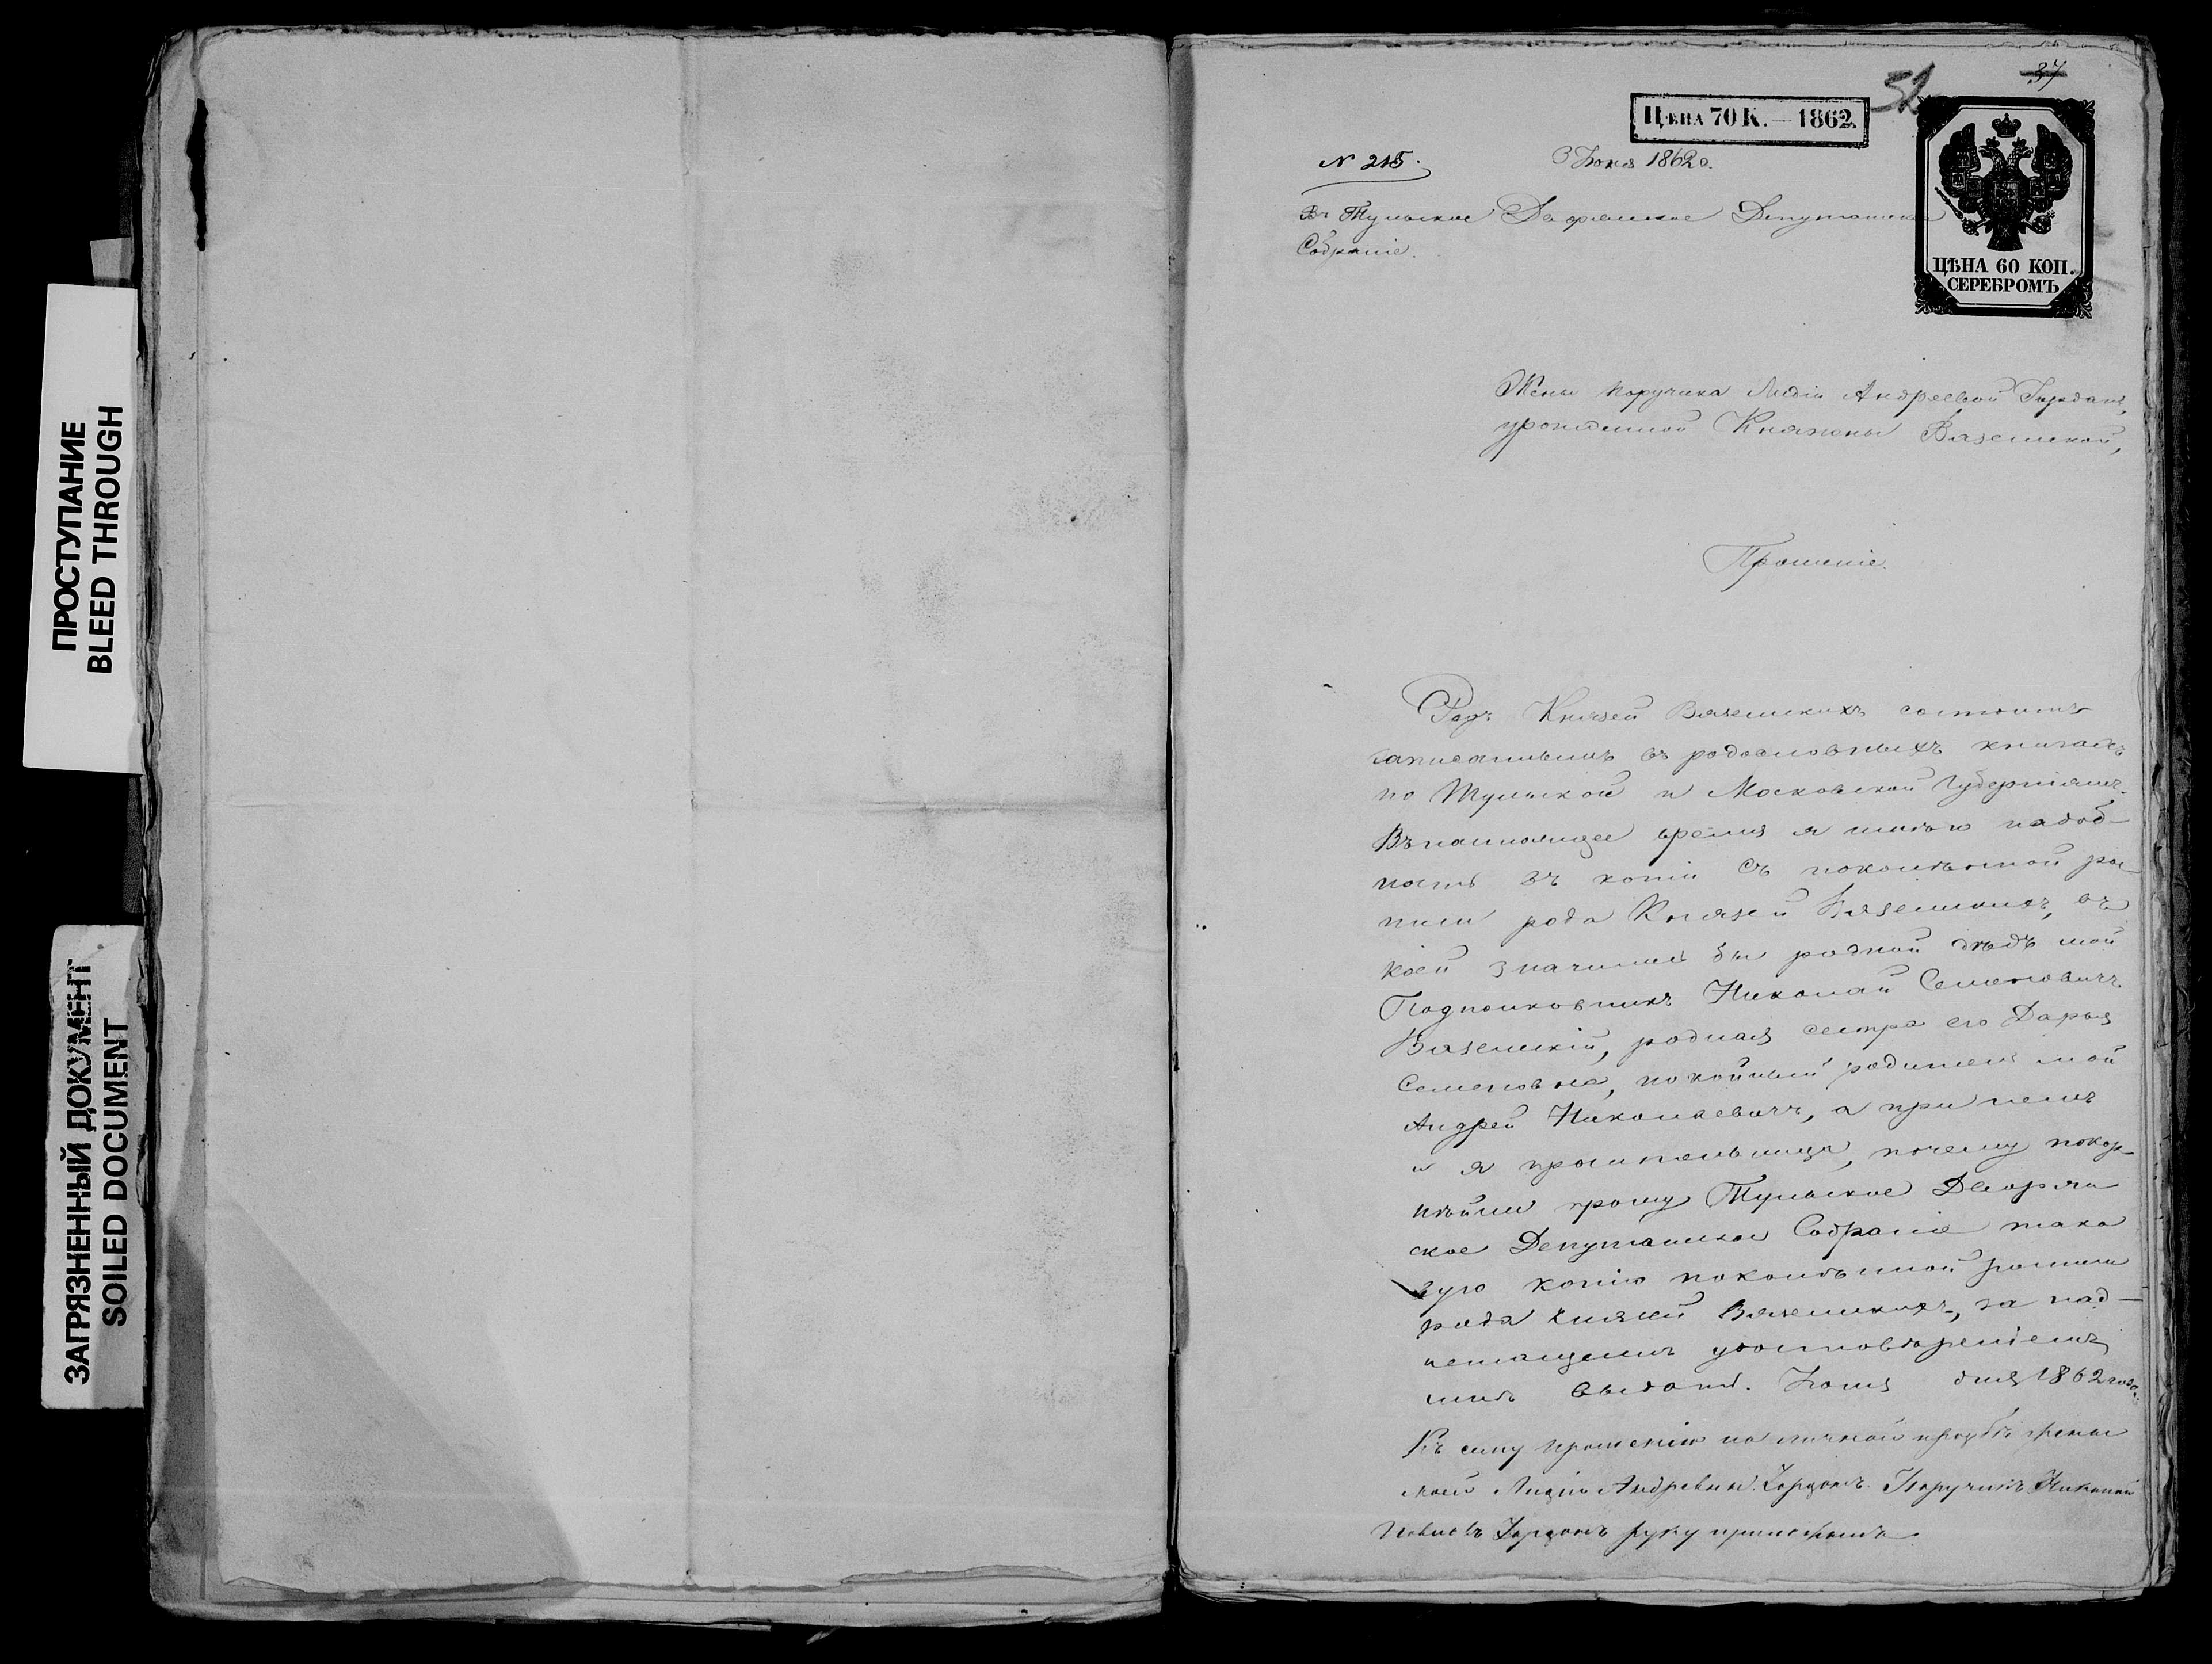 ПРОСТУПАНИЕ
BLEED THROUGH
ЗАГРЯЗНЕННЫЙ ДОКУМЕНТ
SOILED DOCUMENT
37
52
Цѣна 70 К. — 1862.
N 215.
3 Іюня 1862 г.
ЦѢНА 60 КОП.
СЕРЕБРОМЪ
Въ Тульское Дворянское Депутатское
Собраніе.
Жены Поручика Лидіи Андреевой Гордонъ,
урожденной Княжны Вяземской,
Прошеніе.
Родъ Князей Вяземскихъ состоитъ
записаннымъ въ родословныхъ книгахъ
по Тульской и Московской Губерніямъ.
Въ настоящее время я имѣю надоб-
ность въ копіи съ поколѣнной рос-
писи рода Князей Вяземскихъ, въ
коей значились бы родной дѣдъ мой
Подполковникъ Николай Семеновичъ
Вяземскій, родная сестра его Дарья
Семеновна, покойный родитель мой
Андрей Николаевичъ, а при немъ
и я просительница, почему покор-
нѣйше прошу Тульское Дворян
ское Депутатское Собраніе тако
вую копію поколѣнной росписи
рода Князей Вяземскихъ, за над-
лежащимъ удостовѣреніемъ,
мнѣ выдать. Іюня дня 1862 года.
Къ сему прошенію по личной прозбѣ жены
моей Лидіи Андревны Гордонъ Поручикъ Николай
Гордонъ руку приложилъ.